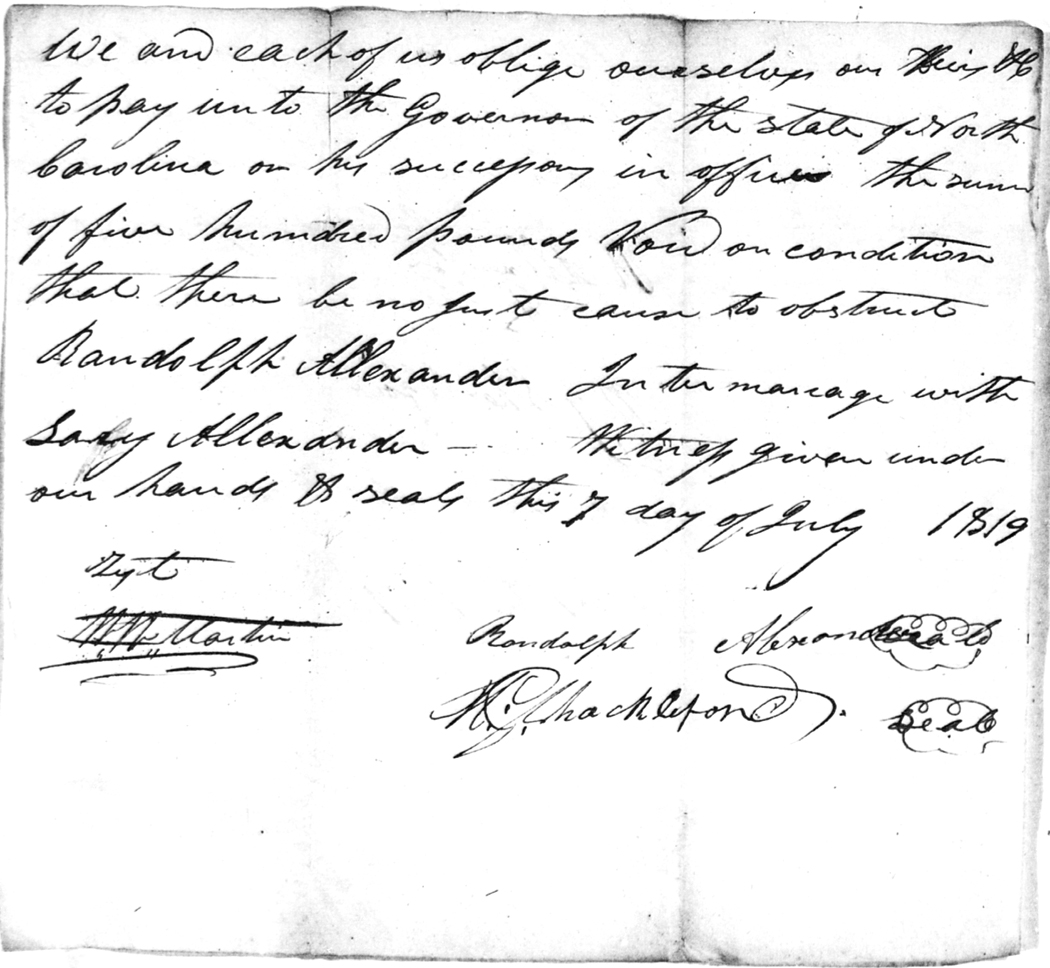 We and each of us oblige ourselves our Heirs &C
to pay unto the Governor of the state of North
Carolina or his successors in office the sum
of five hundred pounds Void on condition
that there be no just cause to obstruct
Randolph Allexander Inter marage with
Allexander — Witness given under
our hands & seals this 7 day of July 1819
Test
Martin
Randolph Alexander Seal
Shackleford Seal